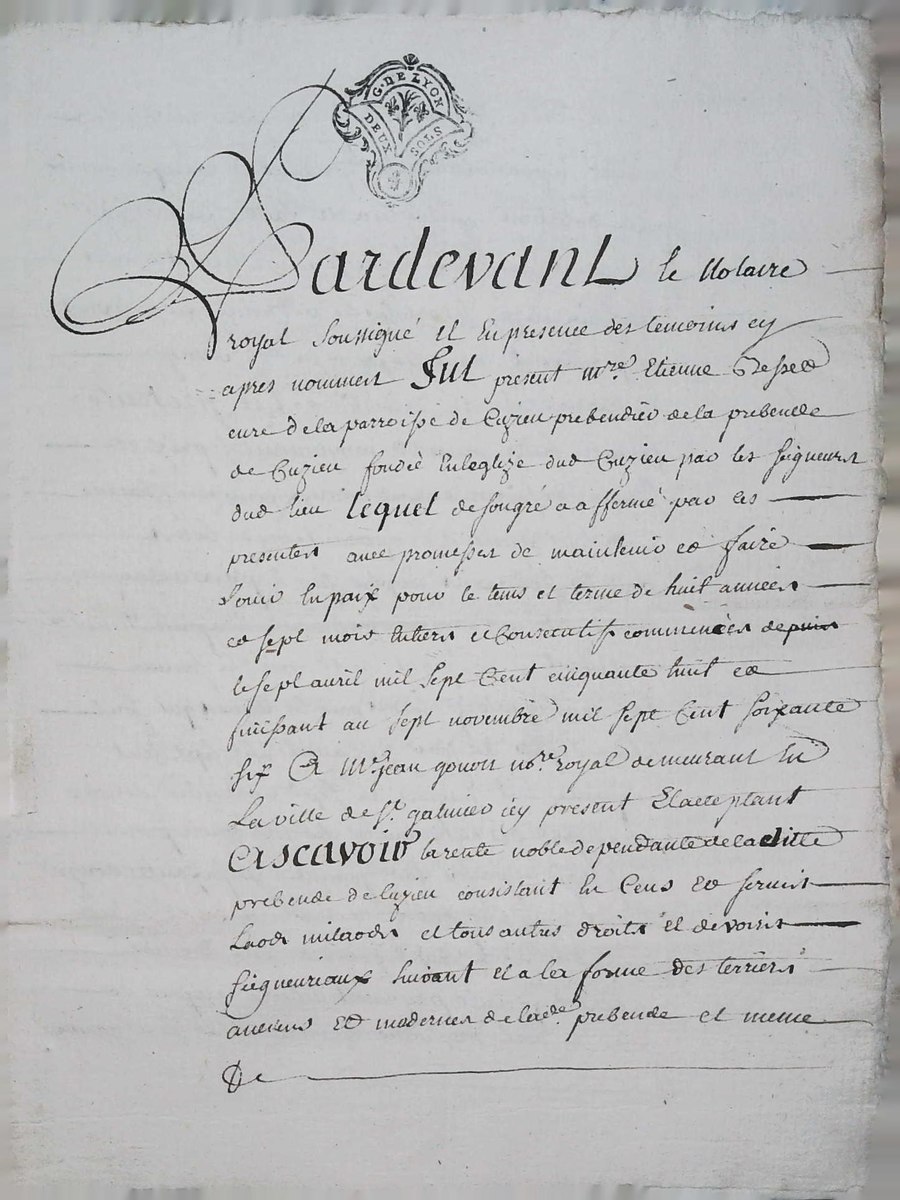 G. DE LYON
DEUX SOLS
Pardevant le Notaire
royal Soussigné et En presence des temoins cy
apres nommest Fut present mre. Etienne
cure de la parroisse de Cuzieu prebendier de la prebende
de Cuzieu fondée En leglize dud Cuzieu par les seigneurs
dud lieu lequel de son gré a affermé par ces
presentes avec promesses de maintenir et faire
Jouir En paix pour le tems et terme de huit années
et sept mois Entiers et Consecutifs commencés depuis
le sept avril mil sept Cent cinquante huit et
finissant au sept novembre mil sept Cent soixante
six A Me. jean gonon nore. royal demeurant En
La ville de St. galmier icy present Et acceptant
Ascavoir la rente noble dependante de la ditte
prebende de Cuzieu consistant En Cens et servis
Laods milaods et tous autres droits et devoirs
seigneuriaux suivant et a la forme des terriers
anciens et modernes de lade. prebende et meme
De